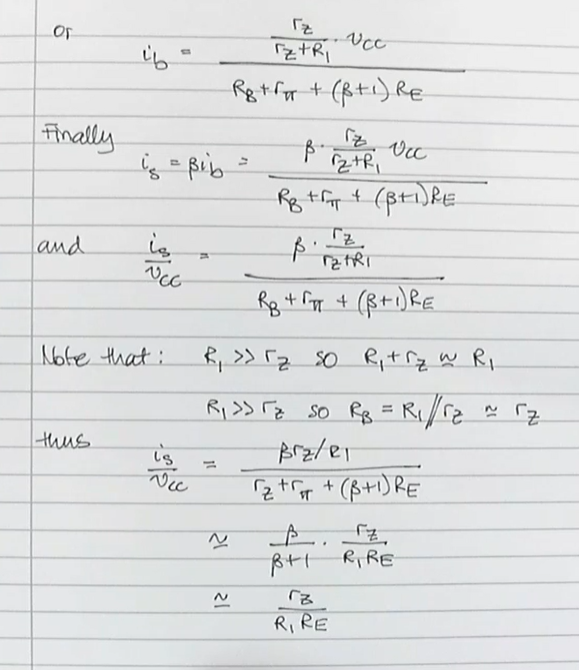 or i_b = (r_Z/(r_Z+R_1) · v_CC) / (R_B + r_π + (β+1) R_E)
Finally i_s = βi_b = (β · r_Z/(r_Z+R_1) v_CC) / (R_B + r_π + (β+1)R_E)
and i_s/v_CC = (β · r_Z/(r_Z+R_1)) / (R_B + r_π + (β+1)R_E)
Note that: R_1 >> r_Z so R_1 + r_Z ≃ R_1
R_1 >> r_Z so R_B = R_1//r_Z ≃ r_Z
thus i_s/v_cc = (βr_Z/R_1) / (r_Z + r_π + (β+1)R_E)
≃ β/(β+1) · r_Z/(R_1 R_E)
≃ r_Z/(R_1 R_E)